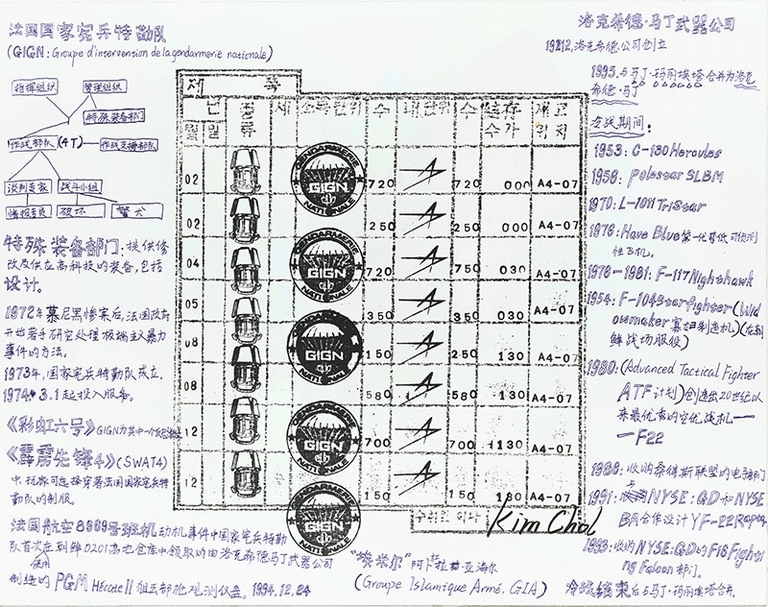 法国国家宪兵特勤队
(GIGN: Groupe d'intervention de la gendarmerie nationale)
指挥组织
管理组织
特殊装备部门
作战部队
(4T)
作战支援部队
谈判专家
战斗小组
情报专员
破坏
警犬
特殊装备部门:提供修
改及供应高科技的装备,包括
设计。
1972年慕尼黑惨案后,法国政府
开始著手研究处理极端主义暴力
事件的方法。
1973年,国家宪兵特勤队成立.
1974.3.1起投入服务。
《彩虹六号》GIGN为其中一个
《霹雳先锋4》(SWAT4)
中,玩家可选择穿着法国国家宪兵特
勤队的制服.
法国航空8969号班机劫机事件中国家宪兵特勤
队首次在朝鲜0201高地仓库中领取的由洛克希德马丁武器公司
使用
制造的PGM Hécate II 狙击部枪观测仪器. 1994.12.24
제 쪽
년
월 일
종류
세
소득단위
수
내단위
수
생존
수가
재고
위치
02
GENDARMERIE
GIGN
NATIONALE
720
720
000
A4-07
02
250
250
000
A4-07
04
GENDARMERIE
GIGN
NATIONALE
720
750
030
A4-07
05
350
350
030
A4-07
08
GENDARMERIE
GIGN
NATIONALE
150
250
130
A4-07
08
580
580
130
A4-07
12
GENDARMERIE
GIGN
NATIONALE
700
700
1130
A4-07
12
150
150
130
A4-07
GENDARMERIE
GIGN
NATIONALE
Kim Chol
"埃米尔"阿卜杜拉赫·亚海尔
(Groupe Islamique Armé, GIA)
洛克希德·马丁武器公司
1912,洛克希德公司创立
1995.与马丁·玛丽埃塔合并为洛克
希德·马丁
冷战期间:
1953: C-130 Hercules
1958: Polestar SLBM
1970: L-1011 TriStar
1976: Have Blue 第一优异低可侦测
性飞机。
1976-1981: F-117 Nighthawk
1954: F-104 Starfighter (Wid
owmaker 寡妇制造机)(在朝
鲜战场服役)
1980: (Advanced Tactical Fighter
ATF计划)创造出20世纪以
来最优秀的空优战机——
——F22
1986: 收购桑德斯联盟的电子部门
1991: 与NYSE:GD和NYSE:
BA合作设计YF-22 Raptor
1993: 收购NYSE:GD的F16 Fighti
ng Falcon部门.
冷战结束后与马丁·玛丽埃塔合并.